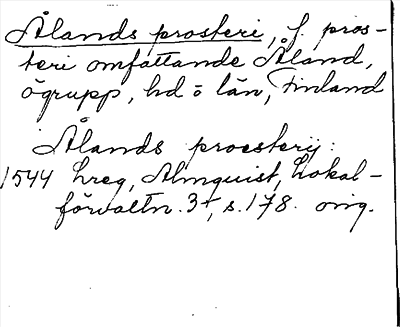 Ålands prosteri, f. pros-
teri omfattande Åland,
ögrupp, hd o län, Finland
Ålands proesterij:
1544 Lreg, Almquist, Lokal-
förvaltn. 3+, s. 178. orig.